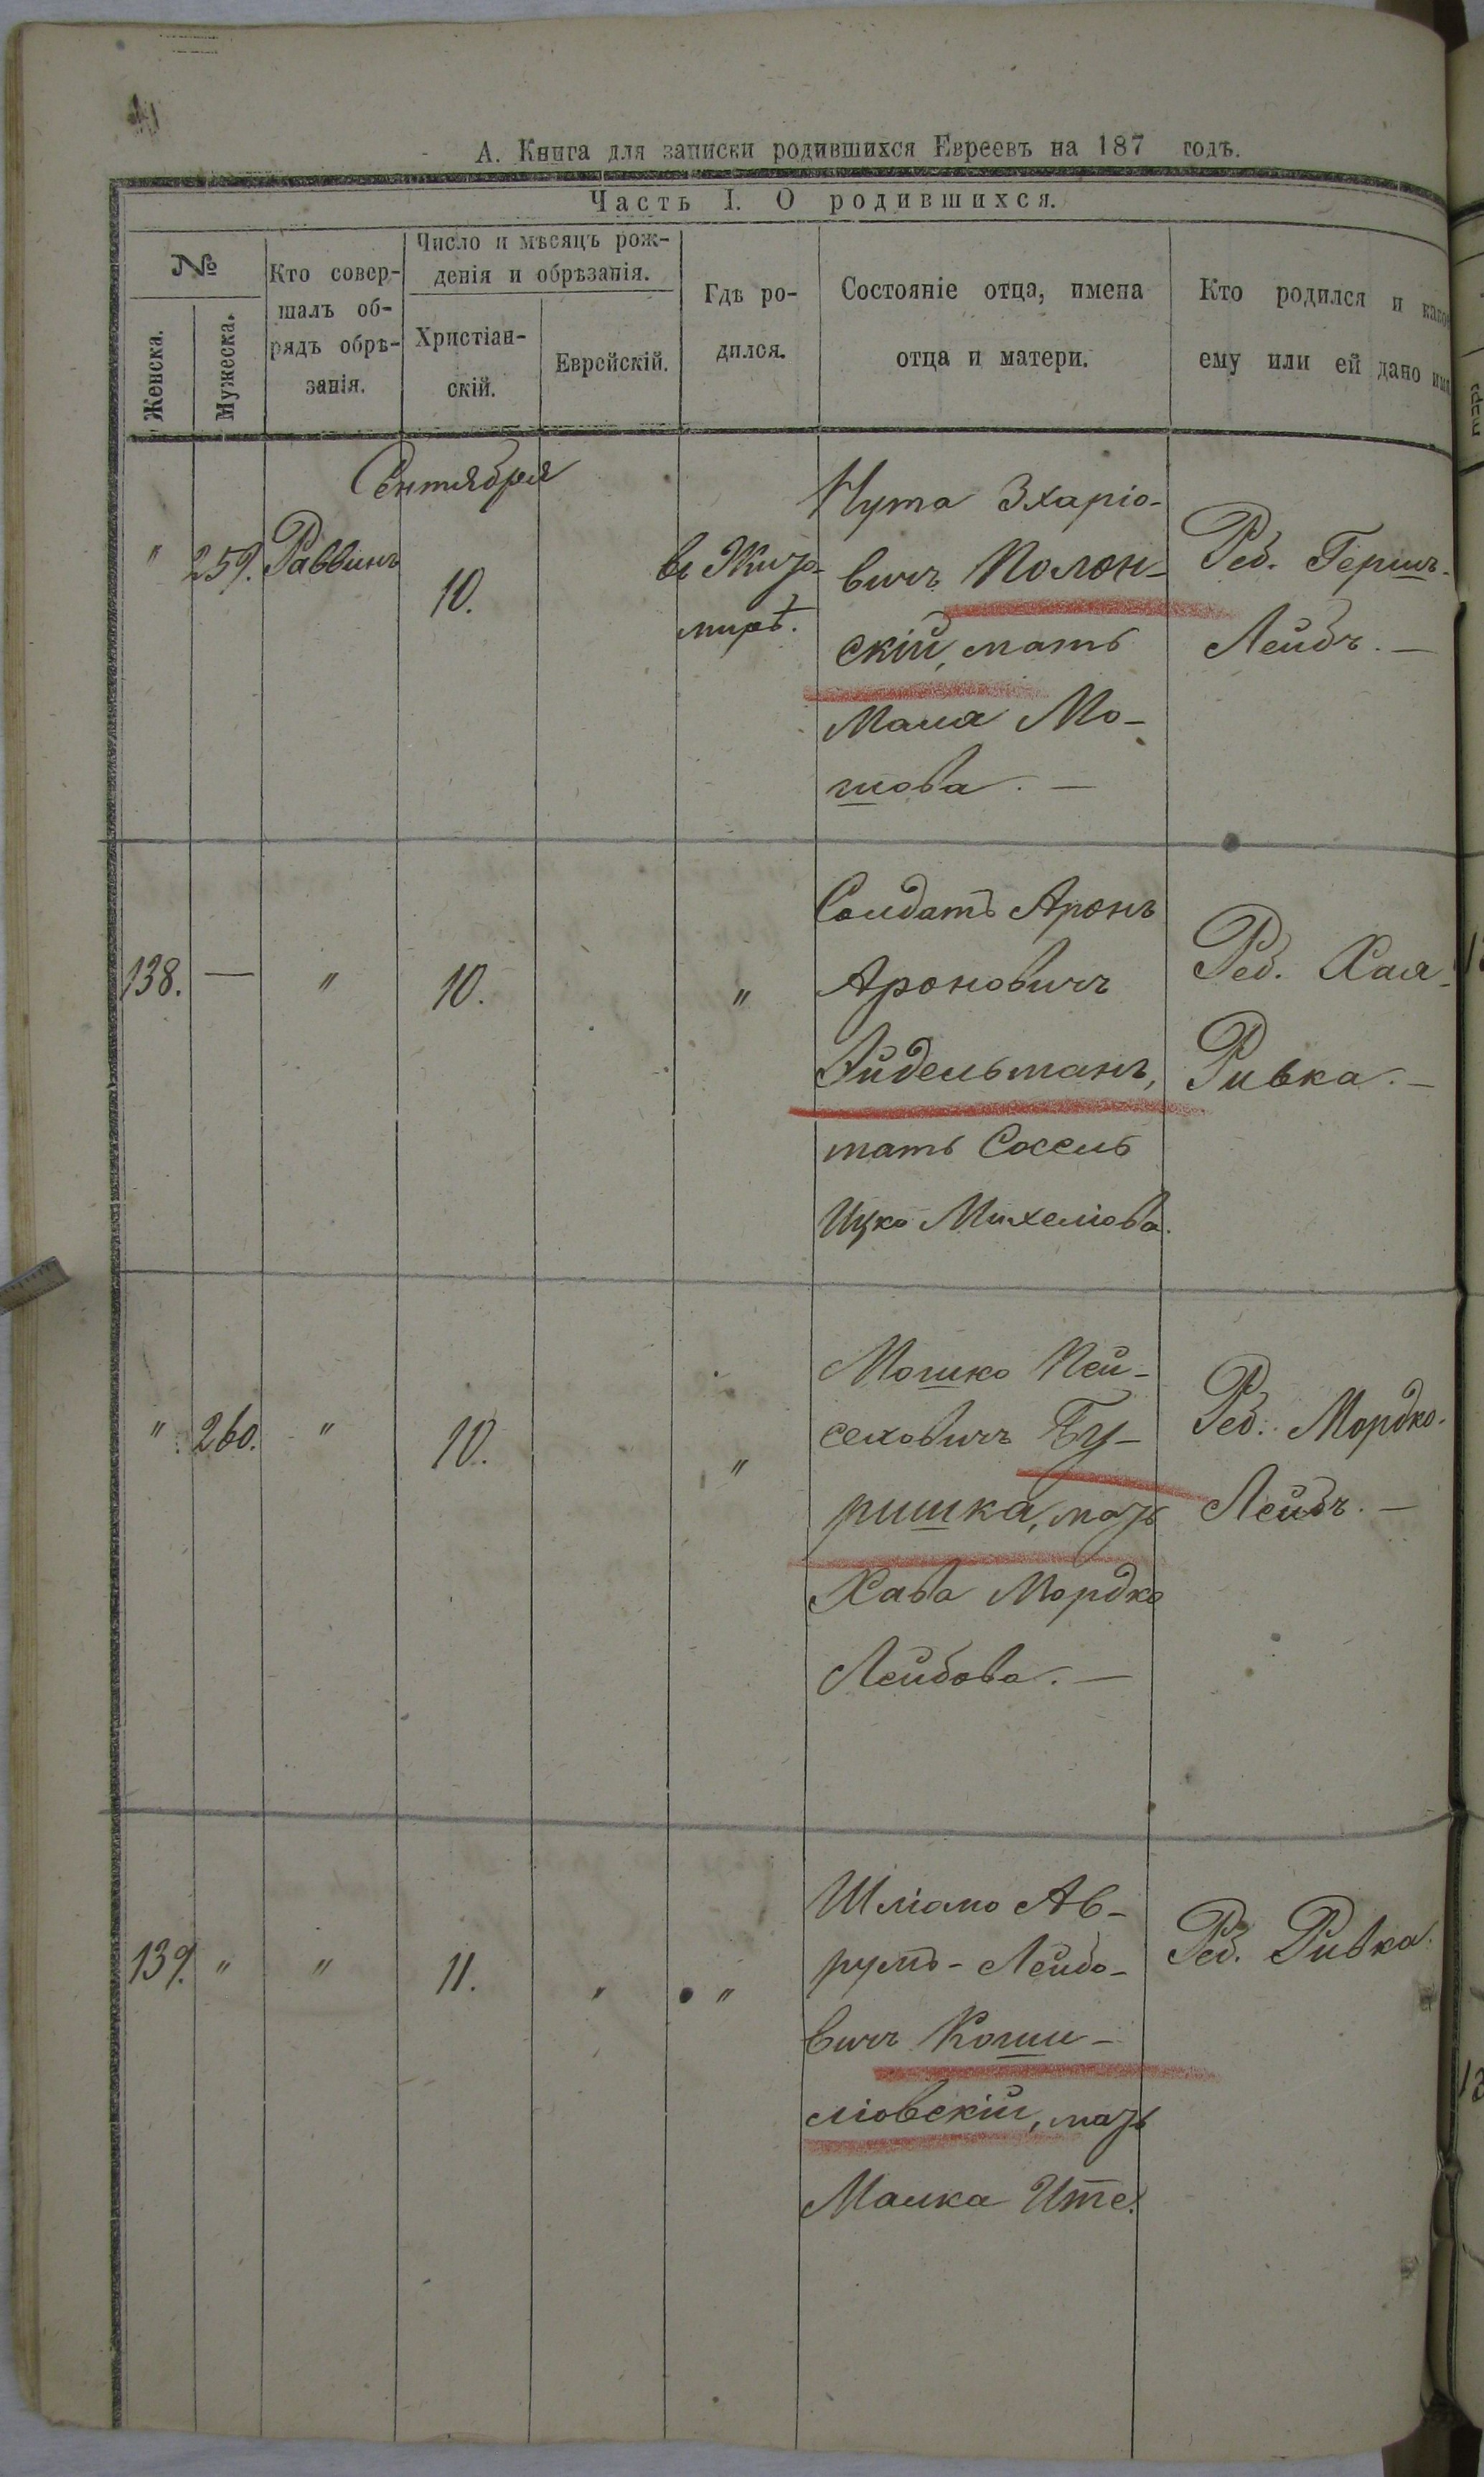 А. Книга для записки родившихся Евреевъ на 187 годъ.
Часть I. О родившихся.
№
Женска.
Мужеска.
Кто совер-
шалъ об-
рядъ обрѣ-
занія.
Число и мѣсяцъ рож-
денія и обрѣзанія.
Христіан-
скій.
Еврейскій.
Гдѣ ро-
дился.
Состояніе отца, имена
отца и матери.
Кто родился и какое
ему или ей дано имя
Сентября
" 259. Раввинъ 10.
въ Жито-
мирѣ.
Нута Зхаріо-
вичъ Полон-
скій, мать
Маля Мо-
шова. —
Реб. Гершъ-
Лейбъ. —
138. — " 10. "
Солдатъ Аронъ
Ароновичъ
Айдельманъ,
мать Сосель
Ицко Михеліова.
Реб. Хая-
Ривка. —
" 260. " 10. "
Мошко Пей-
сеховичъ Бу-
ришка, мать
Хава Мордко
Лейбова. —
Реб. Мордко-
Лейбъ. —
139. " " 11. " "
Шліомо Ав-
румъ-Лейбо-
вичъ Коши-
ліовскій, мать
Малка Ите.
Реб. Ривка.